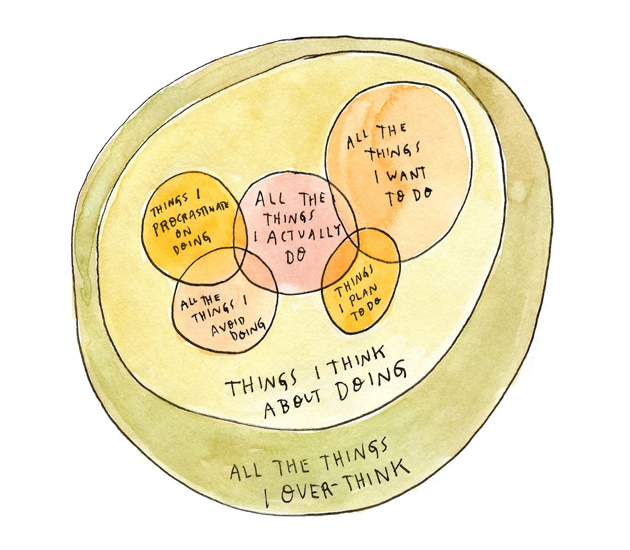 ALL THE
THINGS
I WANT
TO DO
THINGS I
PROCRASTINATE
ON
DOING
ALL THE
THINGS
I ACTUALLY
DO
ALL THE
THINGS I
AVOID
DOING
THINGS
I PLAN
TO DO
THINGS I THINK
ABOUT DOING
ALL THE THINGS
I OVER-THINK